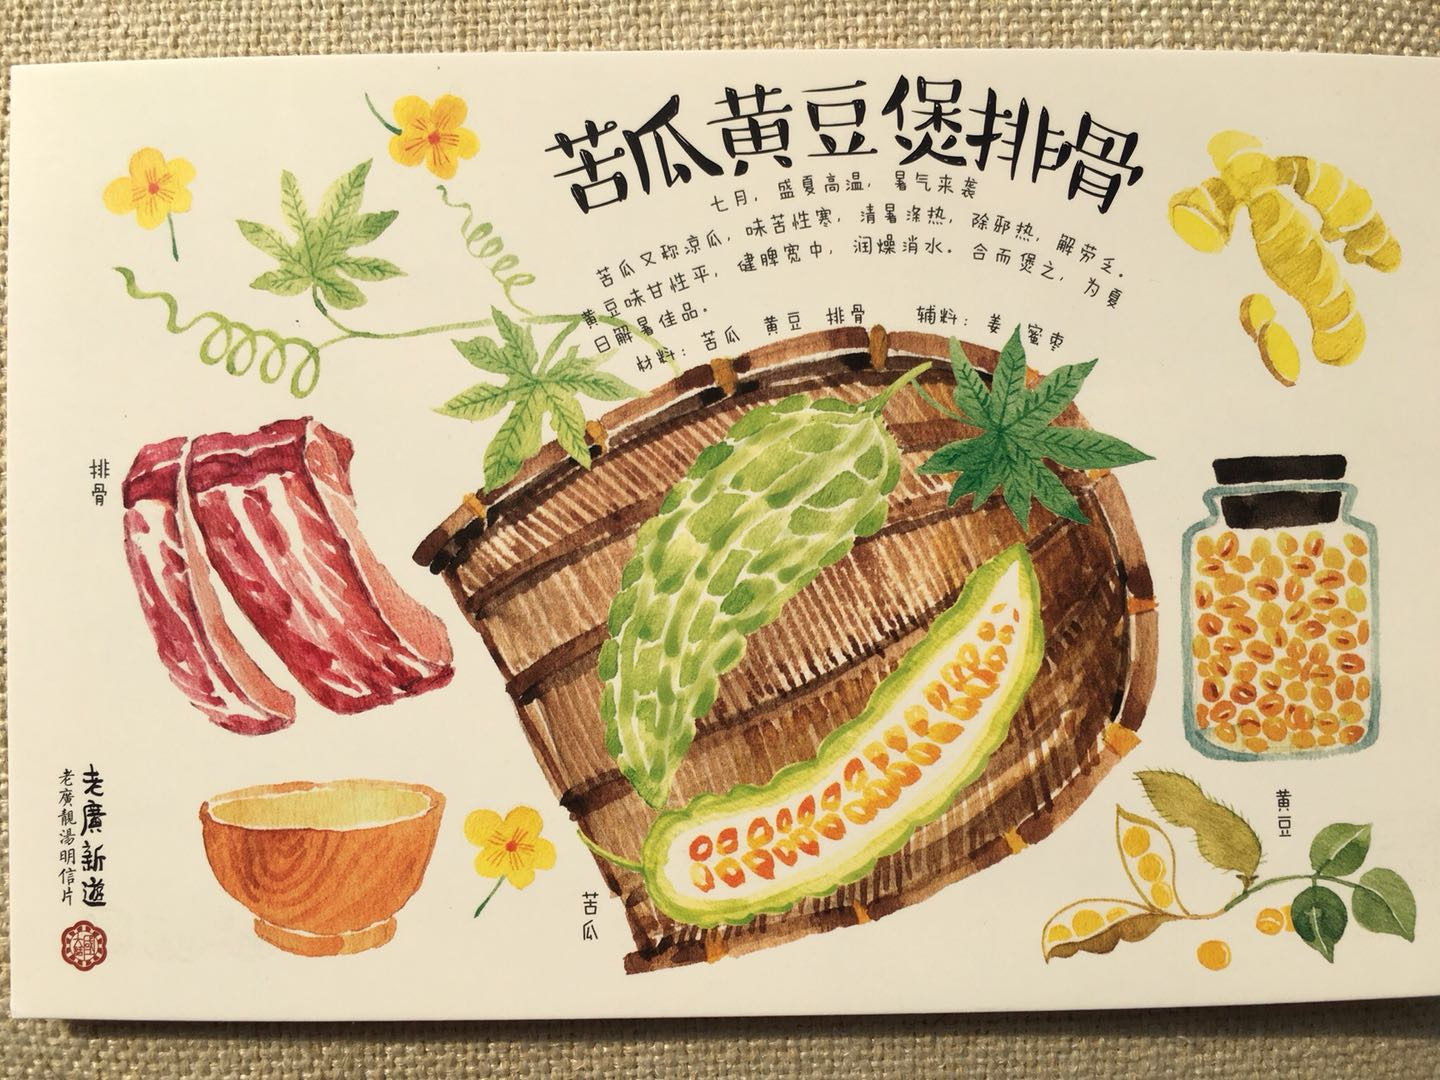 苦瓜黄豆煲排骨
七月，盛夏高温，暑气来袭
苦瓜又称凉瓜，味苦性寒，清暑涤热，除邪热，解劳乏。
黄豆味甘性平，健脾宽中，润燥消水。合而煲之，为夏
日解暑佳品。
材料：苦瓜 黄豆 排骨 辅料：姜 蜜枣
排骨
黄豆
苦瓜
老廣新遊
老廣靚湯明信片